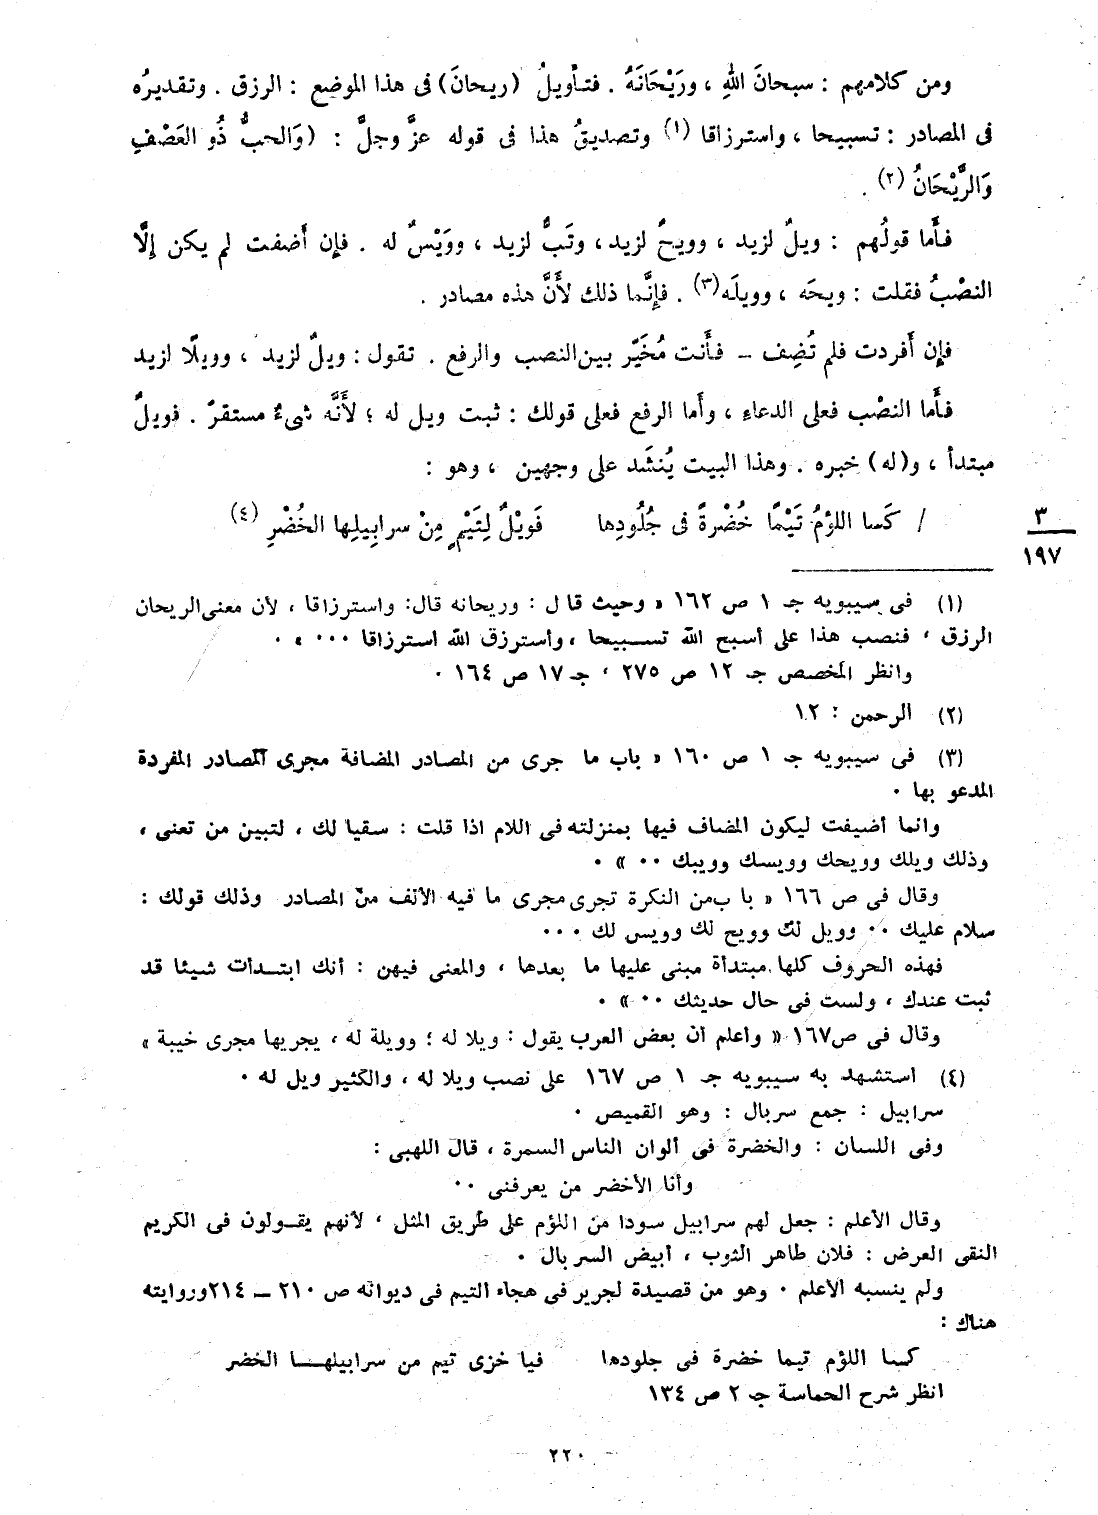 ومن كلامهم : سبحانَ اللهِ ، ورَيْحَانَهُ . فتأويلُ (ريحانَ) فى هذا الموضع : الرزق . وتقديرُه
فى المصادر : تسبيحا ، واسترزاقا (١) وتصديقُ هذا فى قوله عزَّ وجلَّ : (وَالحبُّ ذُو العَصْفِ
وَالرَّيْحَانُ (٢) .
فأَما قولُهم : ويلٌ لزيد ، وويحٌ لزيد ، وتَبٌّ لزيد ، ووَيْسٌ له . فإن أَضفت لم يكن إلَّا
النصْبُ فقلت : ويحَه ، وويلَه(٣) . فإنَّما ذلك لأَنَّ هذه مصادر .
فإن أَفردت فلم تُضِف – فأَنت مُخَيّر بين النصب والرفع . تقول : ويلٌ لزيد ، وويلًا لزيد
فأَما النصْب فعلى الدعاء ، وأَما الرفع فعلى قولك : ثبت ويل له ؛ لأَنَّه شىءٌ مستقرّ . فويلٌ
مبتدأ ، و(له) خبره . وهذا البيت يُنشَد على وجهين ، وهو :
/ كَسا اللؤمُ تَيْمًا خُضْرةً فى جُلُودِها فَوَيْلٌ لِتَيْمٍ مِنْ سرابِيلِها الخُضْرِ (٤)
٣
١٩٧
(١) فى سيبويه جـ ١ ص ١٦٢ « وحيث قال : وريحانه قال: واسترزاقا ، لأن معنى الريحان
الرزق ، فنصب هذا على أسبح الله تسبيحا ، وأسترزق الله استرزاقا ٠٠٠ » ٠
وانظر المخصص جـ ١٢ ص ٢٧٥ ، جـ ١٧ ص ١٦٤ ٠
(٢) الرحمن : ١٢
(٣) فى سيبويه جـ ١ ص ١٦٠ « باب ما جرى من المصادر المضافة مجرى المصادر المفردة
المدعو بها ٠
وانما أضيفت ليكون المضاف فيها بمنزلته فى اللام اذا قلت : سقيا لك ، لتبين من تعنى ،
وذلك ويلك وويحك وويسك وويبك ٠٠ » ٠
وقال فى ص ١٦٦ « با ب من النكرة تجرى مجرى ما فيه الألف من المصادر وذلك قولك :
سلام عليك ٠٠ وويل لك وويح لك وويس لك ٠٠٠
فهذه الحروف كلها مبتدأة مبنى عليها ما بعدها ، والمعنى فيهن : أنك ابتدأت شيئا قد
ثبت عندك ، ولست فى حال حديثك ٠٠ » ٠
وقال فى ص١٦٧ « وأعلم أن بعض العرب يقول : ويلا له ؛ وويلة له ، يجريها مجرى خيبة »
(٤) استشهد به سيبويه جـ ١ ص ١٦٧ على نصب ويلا له ، والكثير ويل له ٠
سرابيل : جمع سربال : وهو القميص ٠
وفى اللسان : والخضرة فى ألوان الناس السمرة ، قال اللهبى :
وأنا الأخضر من يعرفنى ٠٠
وقال الأعلم : جعل لهم سرابيل سودا من اللؤم على طريق المثل ، لأنهم يقولون فى الكريم
النقى العرض : فلان طاهر الثوب ، أبيض السربال ٠
ولم ينسبه الأعلم ٠ وهو من قصيدة لجرير فى هجاء التيم فى ديوانه ص ٢١٠ – ٢١٤ وروايته
هناك :
كسا اللؤم تيما خضرة فى جلودها فيا خزى تيم من سرابيلها الخضر
انظر شرح الحماسة جـ ٢ ص ١٣٤
٢٢٠